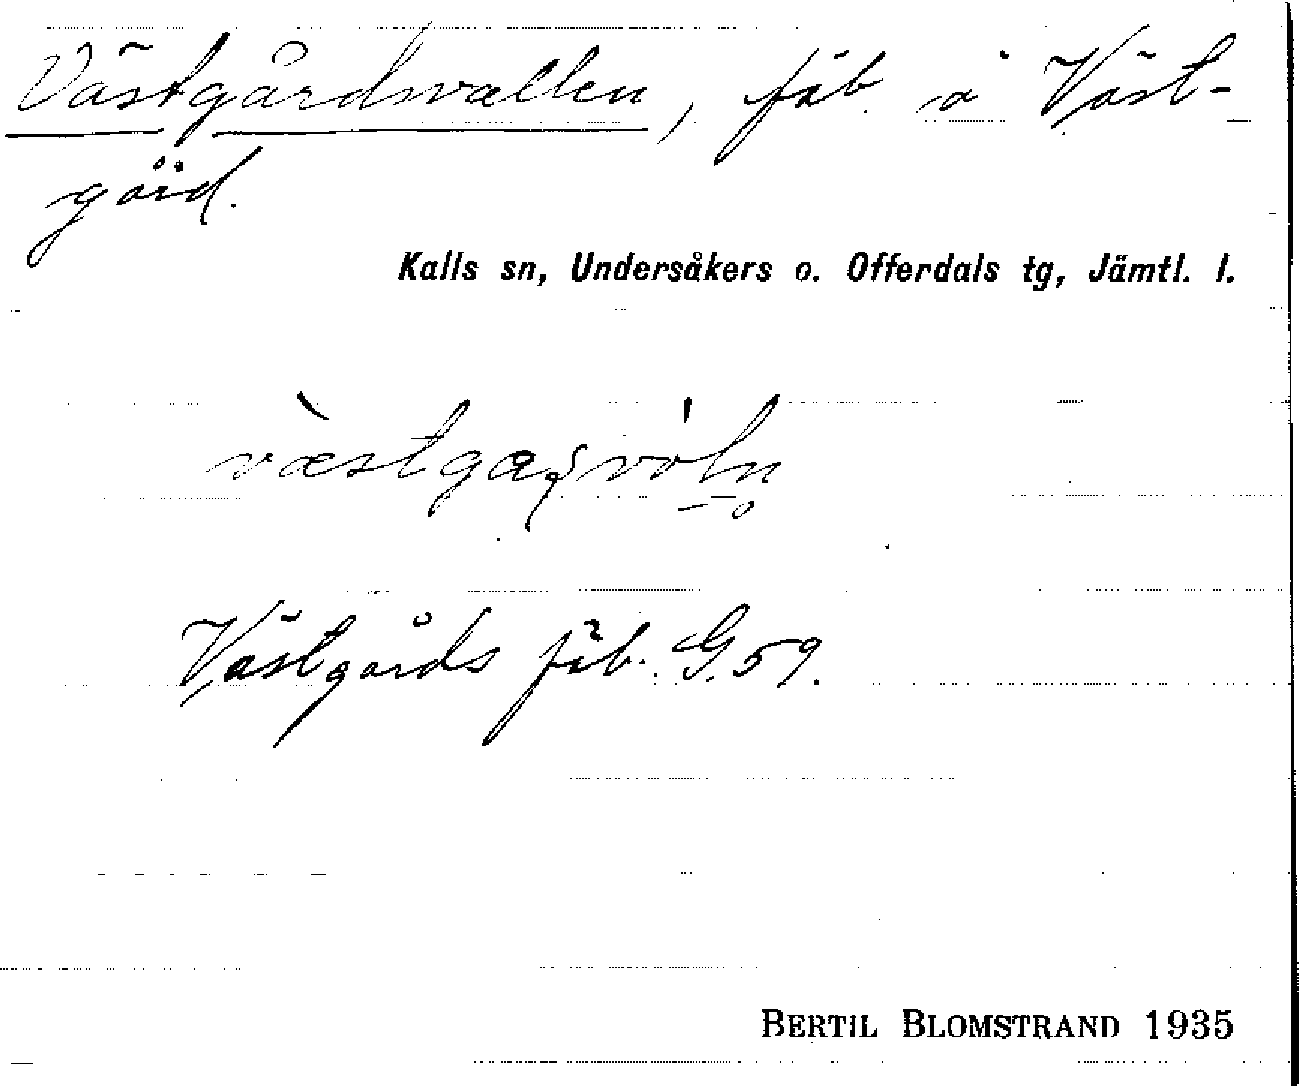 Västgårdsvallen, fäb. å Väst-
gård.
Kalls sn, Undersåkers o. Offerdals tg, Jämtl. l.
Västgårds fäb. G. 59.
BERTIL BLOMSTRAND 1935